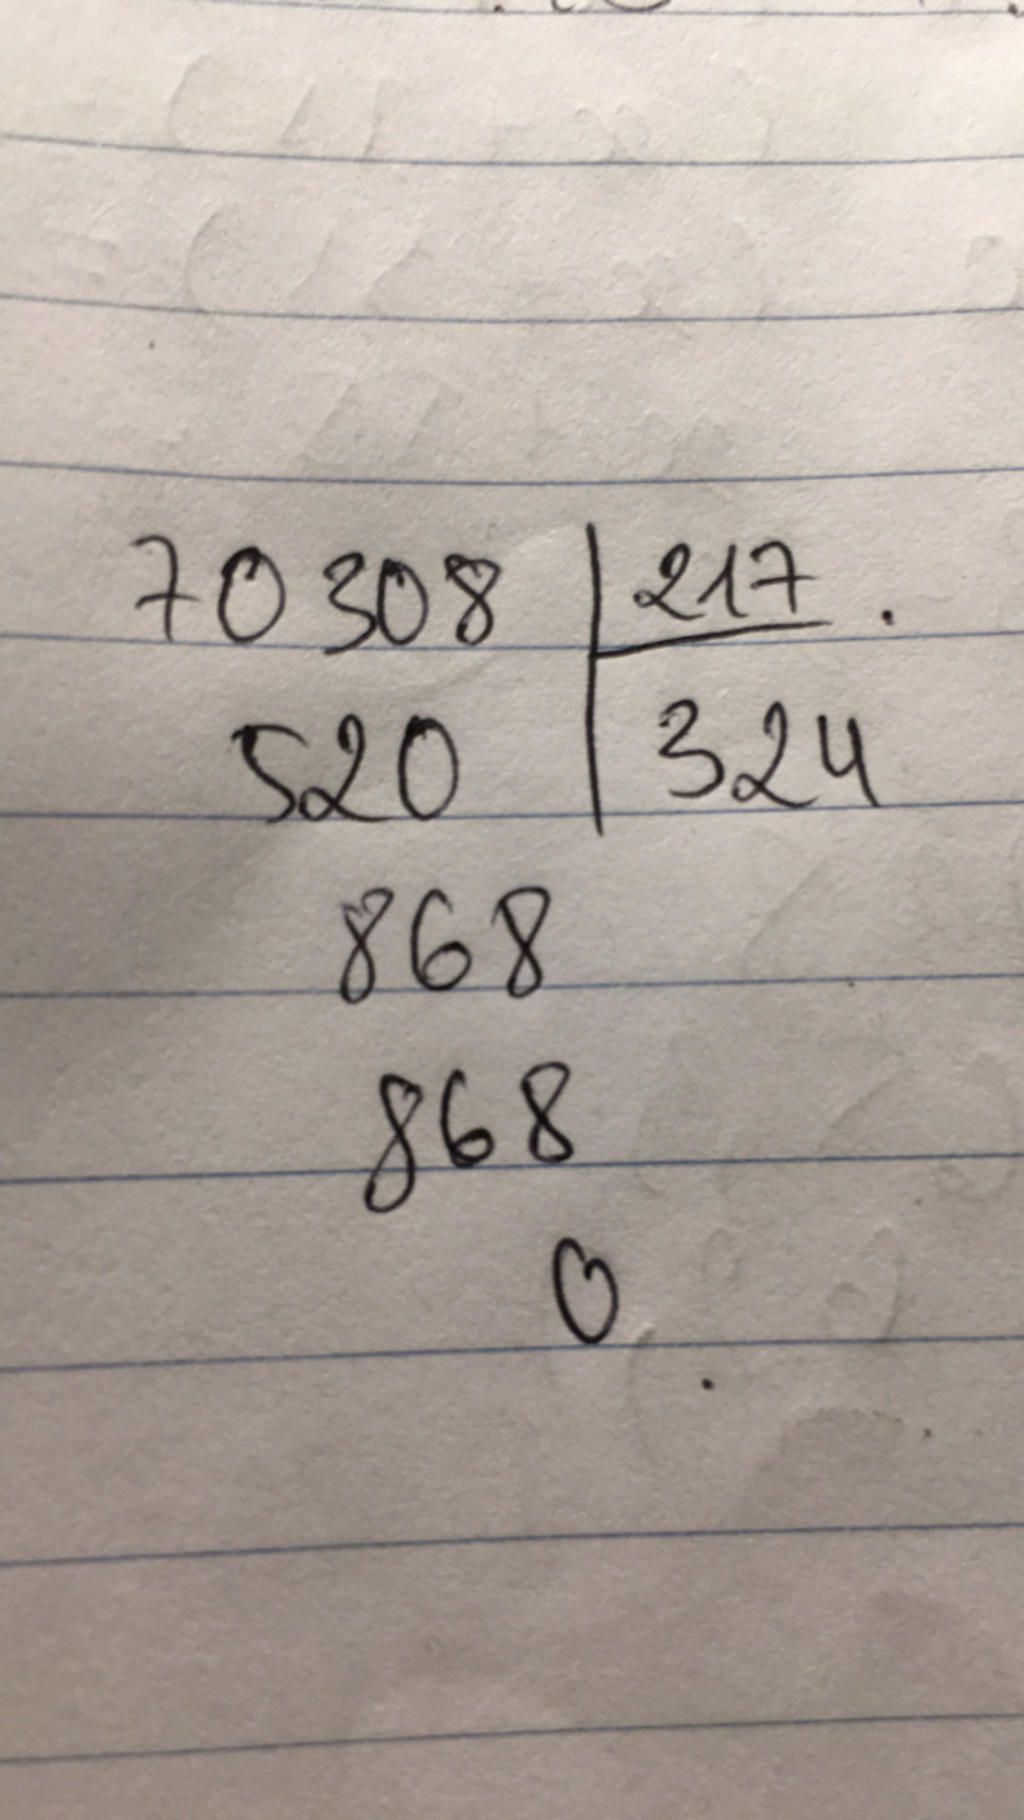 70308 217 .
520 324
868
868
0